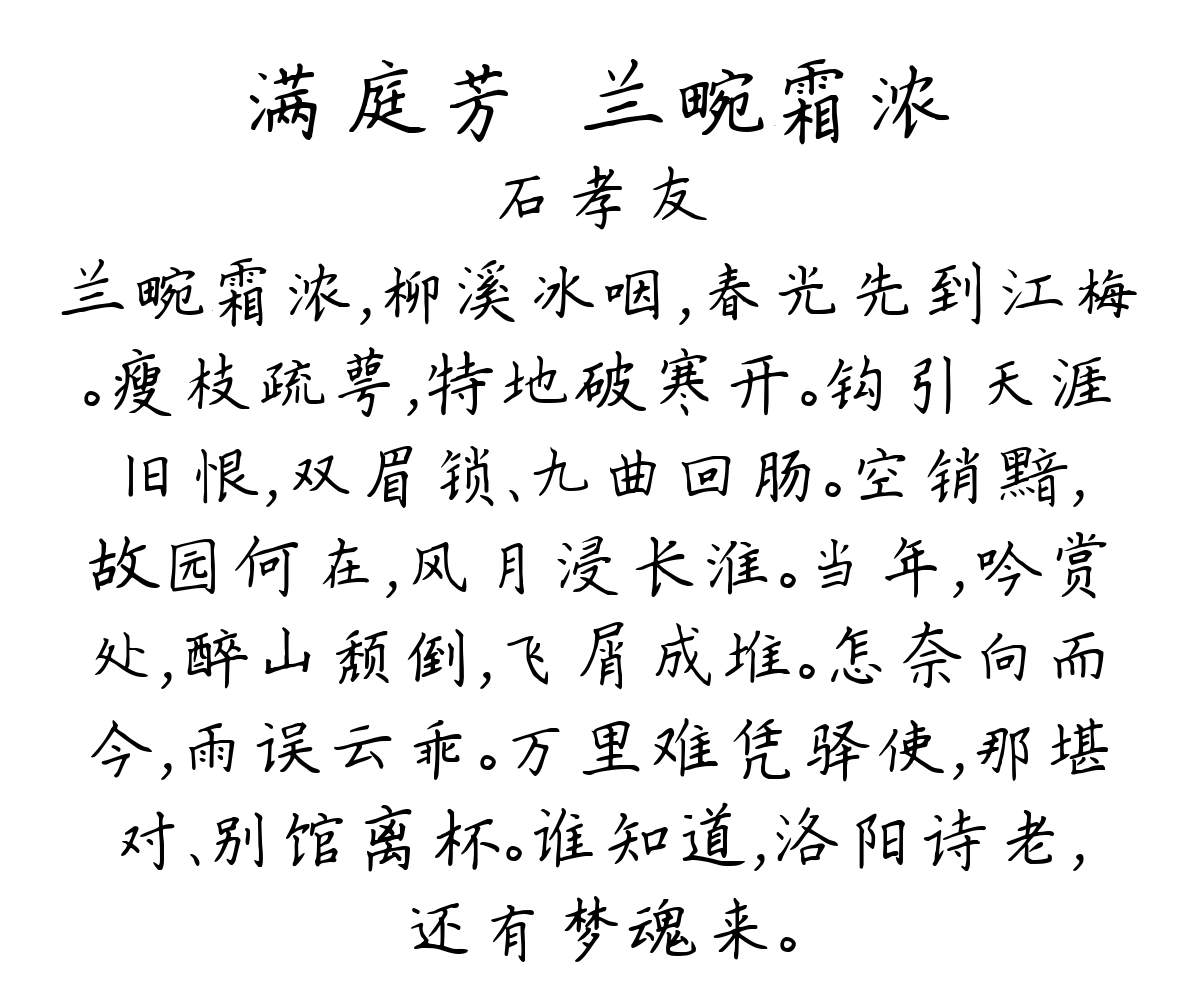 满庭芳 兰畹霜浓
石孝友
兰畹霜浓,柳溪冰咽,春光先到江梅
。瘦枝疏萼,特地破寒开。钩引天涯
旧恨,双眉锁、九曲回肠。空销黯,
故园何在,风月浸长淮。当年,吟赏
处,醉山颓倒,飞屑成堆。怎奈向而
今,雨误云乖。万里难凭驿使,那堪
对、别馆离杯。谁知道,洛阳诗老,
还有梦魂来。